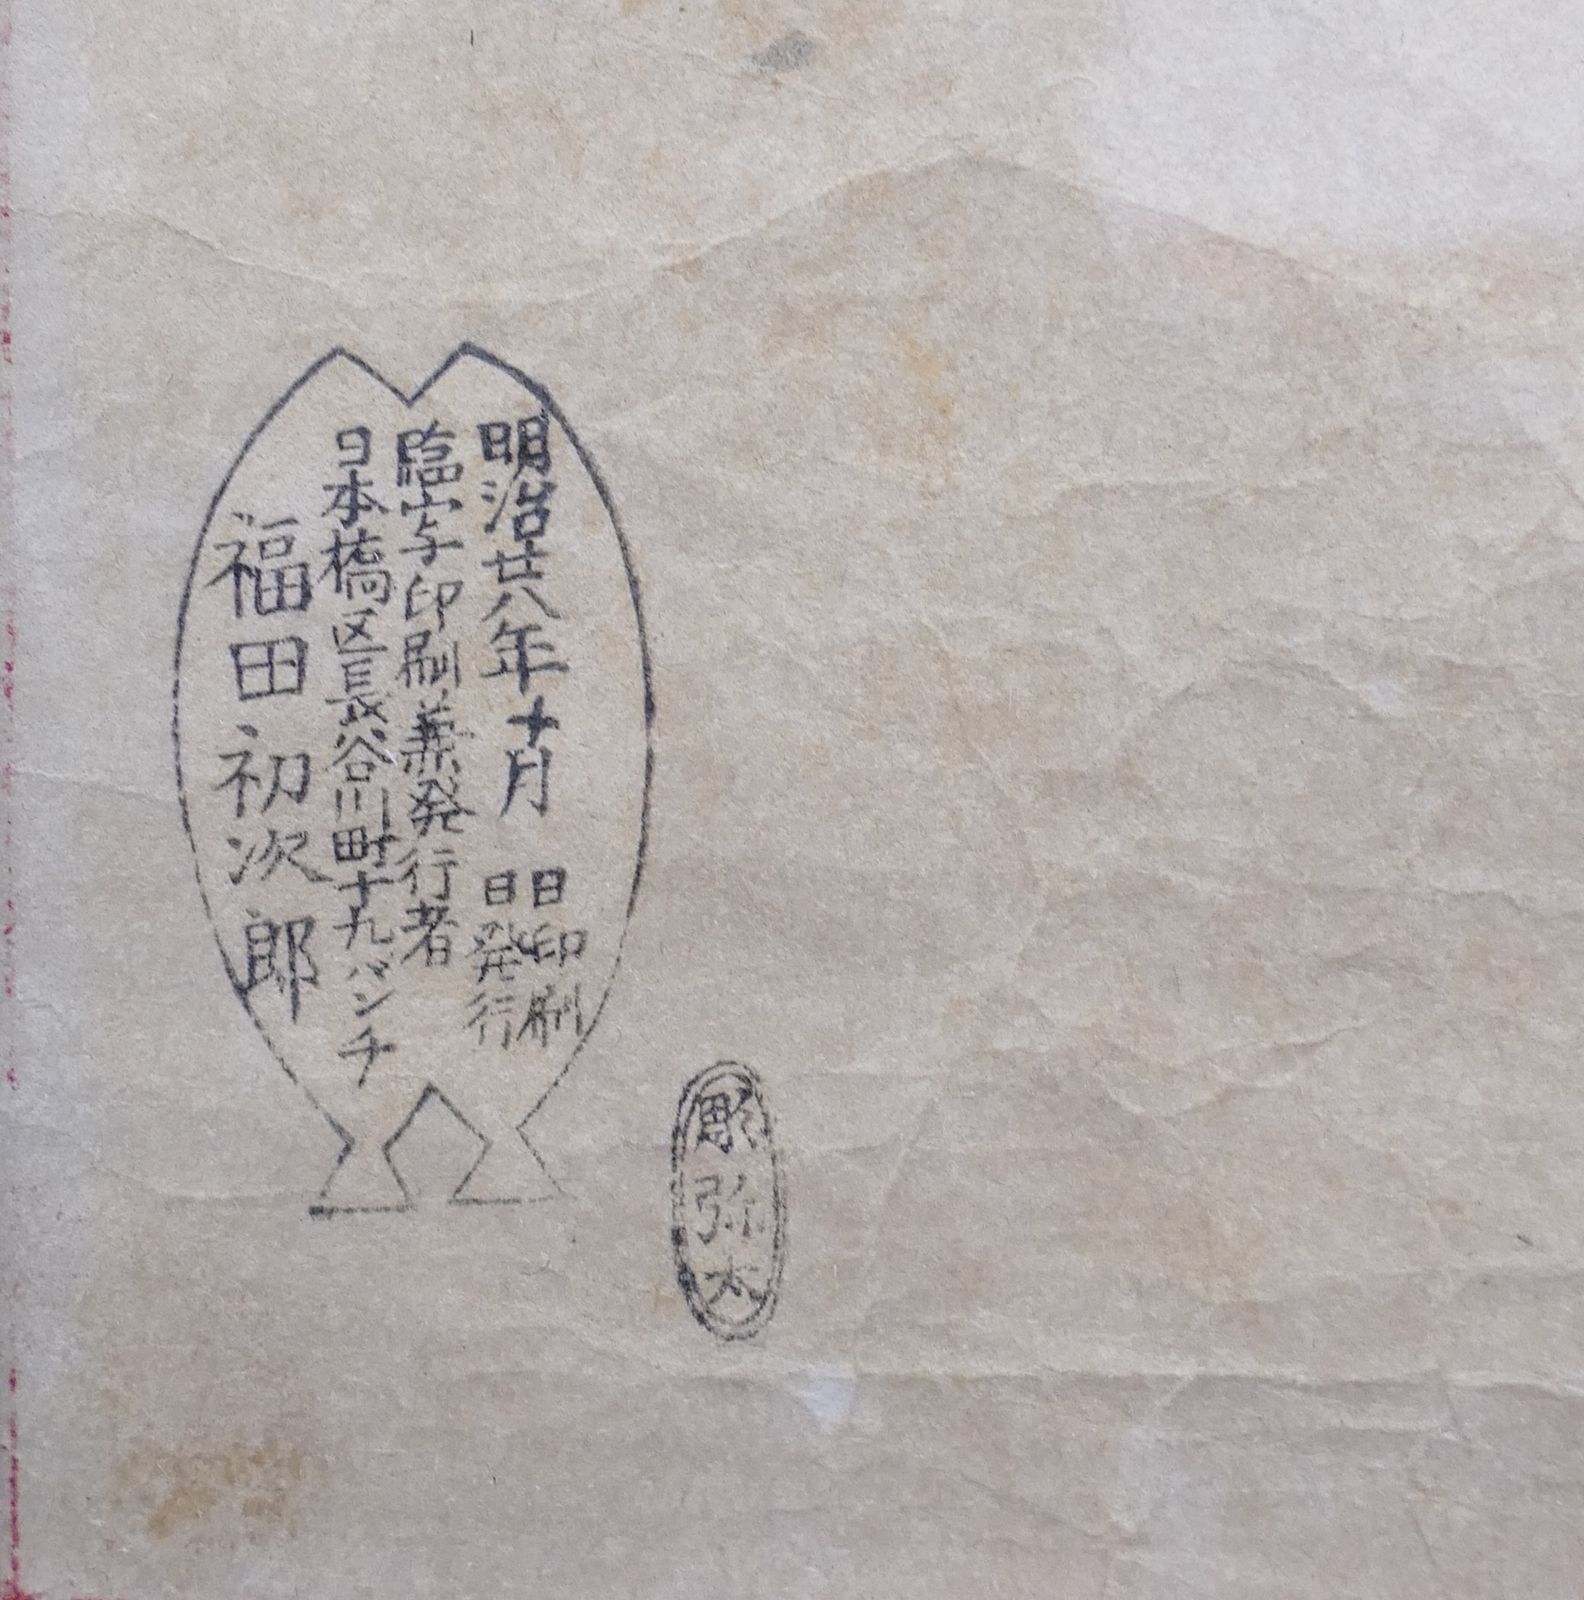 明治廿八年十月　日印刷
日発行
臨写印刷兼発行者
日本橋区長谷川町十九バンチ
福田初次郎
彫弥太